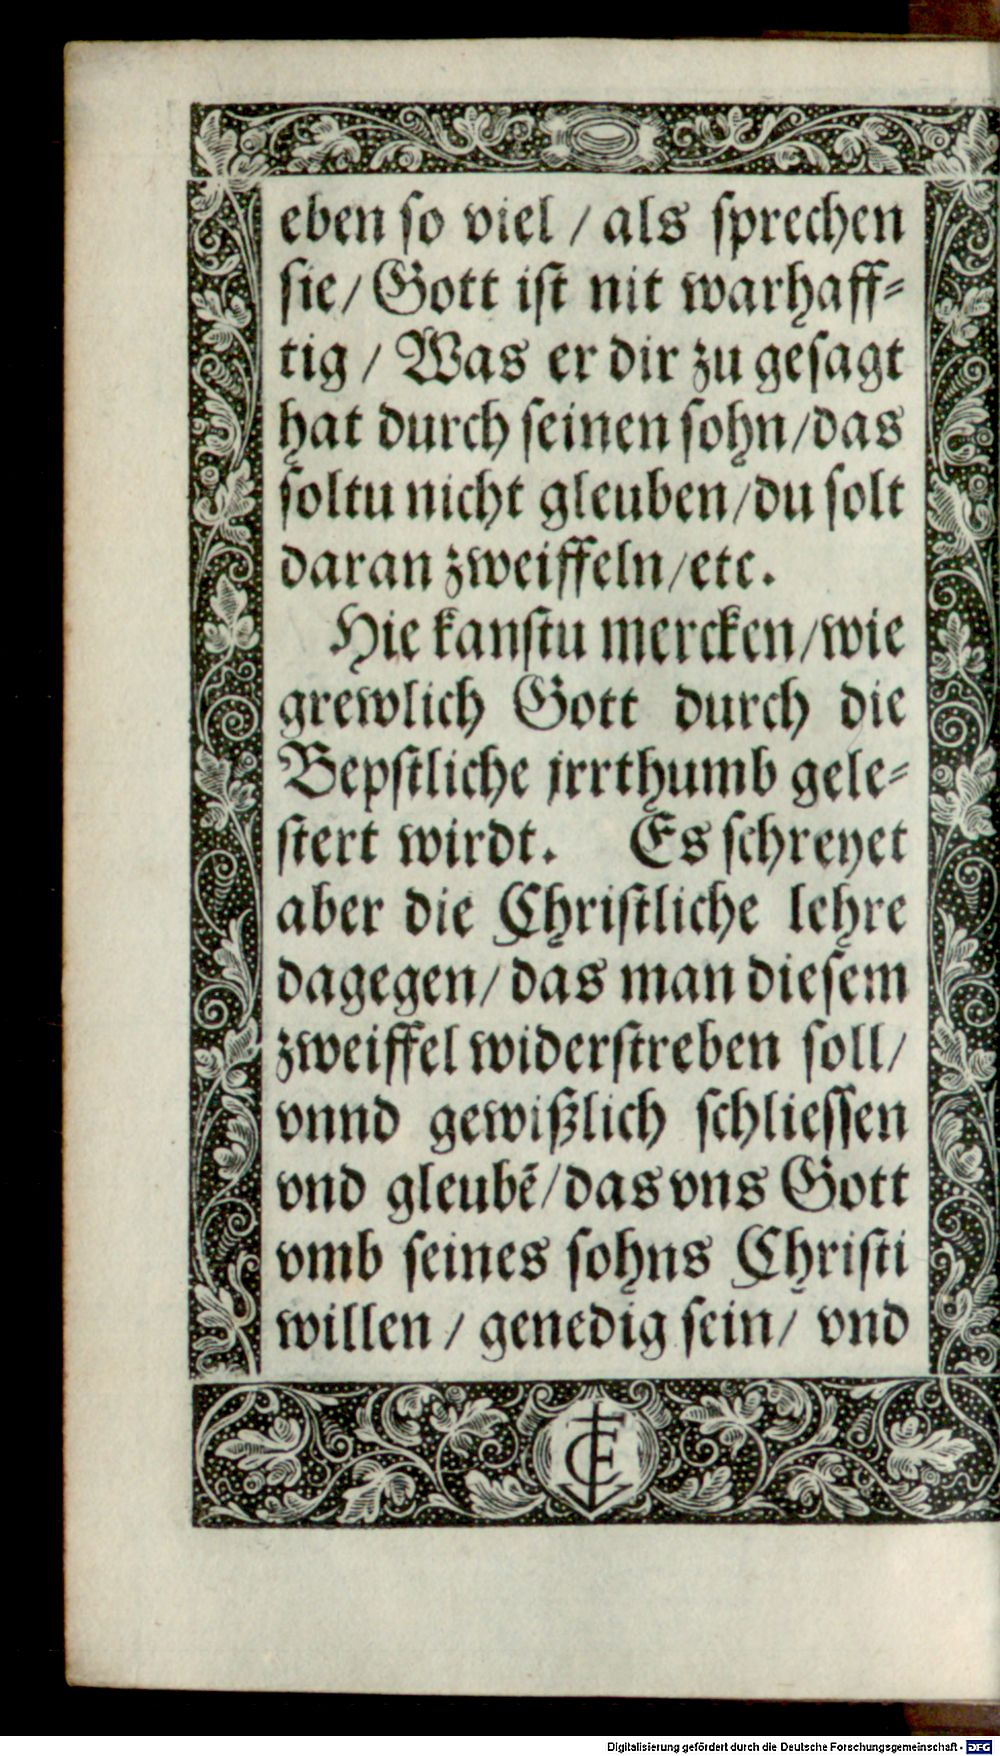 eben ſo viel / als ſprechen
ſie / Gott iſt nit warhaff⸗
tig / Was er dir zu geſagt
hat durch ſeinen ſohn / das
ſoltu nicht gleuben / du ſolt
daran zweiffeln / etc.
Hie kanſtu mercken / wie
grewlich Gott durch die
Bepſtliche jrrthumb gele⸗
ſtert wirdt. Es ſchreyet
aber die Chriſtliche lehre
dagegen / das man dieſem
zweiffel widerſtreben ſoll /
vnnd gewißlich ſchlieſſen
vnd gleubẽ / das vns Gott
vmb ſeines ſohns Chriſti
willen / genedig ſein / vnd
Digitalisierung gefördert durch die Deutsche Forschungsgemeinschaft - DFG